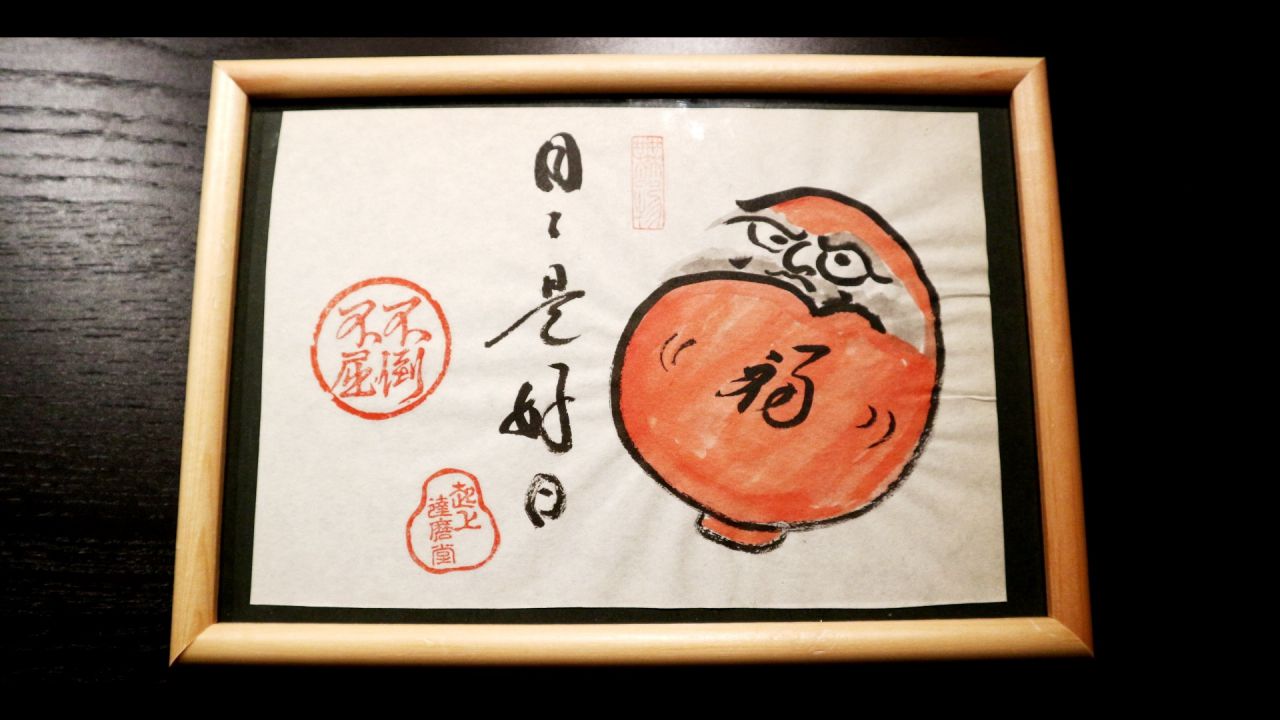 福
日〻是好日
不倒
不屈
起上
達磨堂